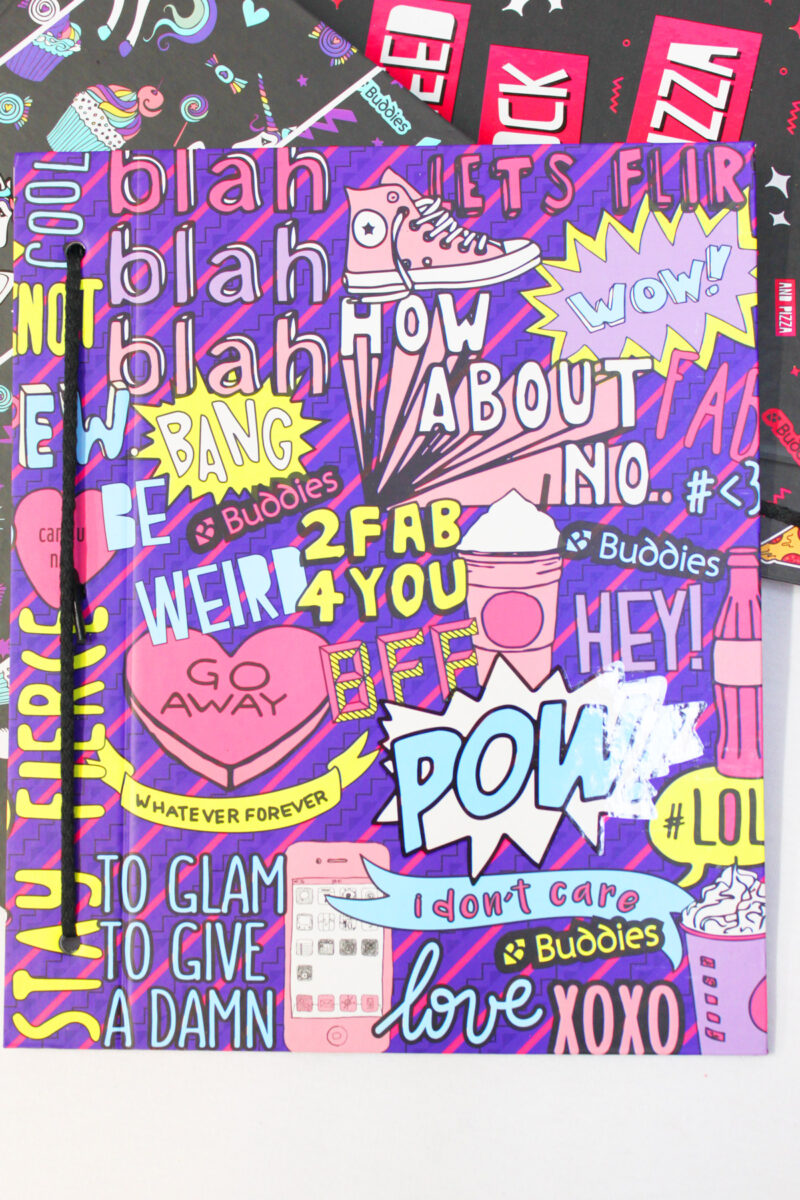 Buddies
PIZZA
AND PIZZA
COOL
blah
blah
blah
LETS FLIR
WOW!
NOT
HOW
ABOUT
NO..
FAB
#<3
EW.
BANG
BE
WEIRD
Buddies
2FAB
4YOU
Buddies
HEY!
GO
AWAY
BFF
POW
WHATEVER FOREVER
#LOL
STAY FIERCE
TO GLAM
TO GIVE
A DAMN
i don't care
Buddies
love
XOXO